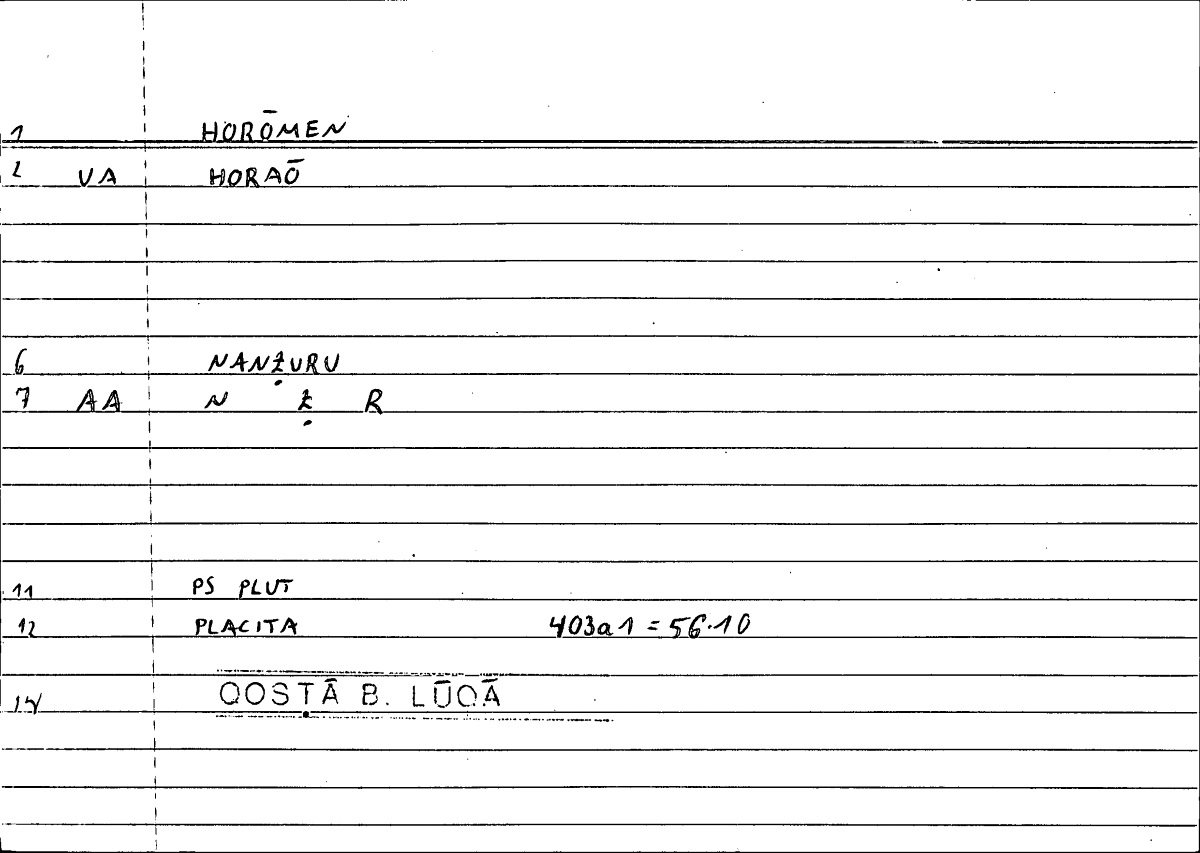 1 HORŌMEN
2 VA HORAŌ
6 NANẒURU
7 AA N Ẓ R
11 PS PLUT
12 PLACITA 403a1 = 56.10
14 QOSṬĀ B. LŪQĀ